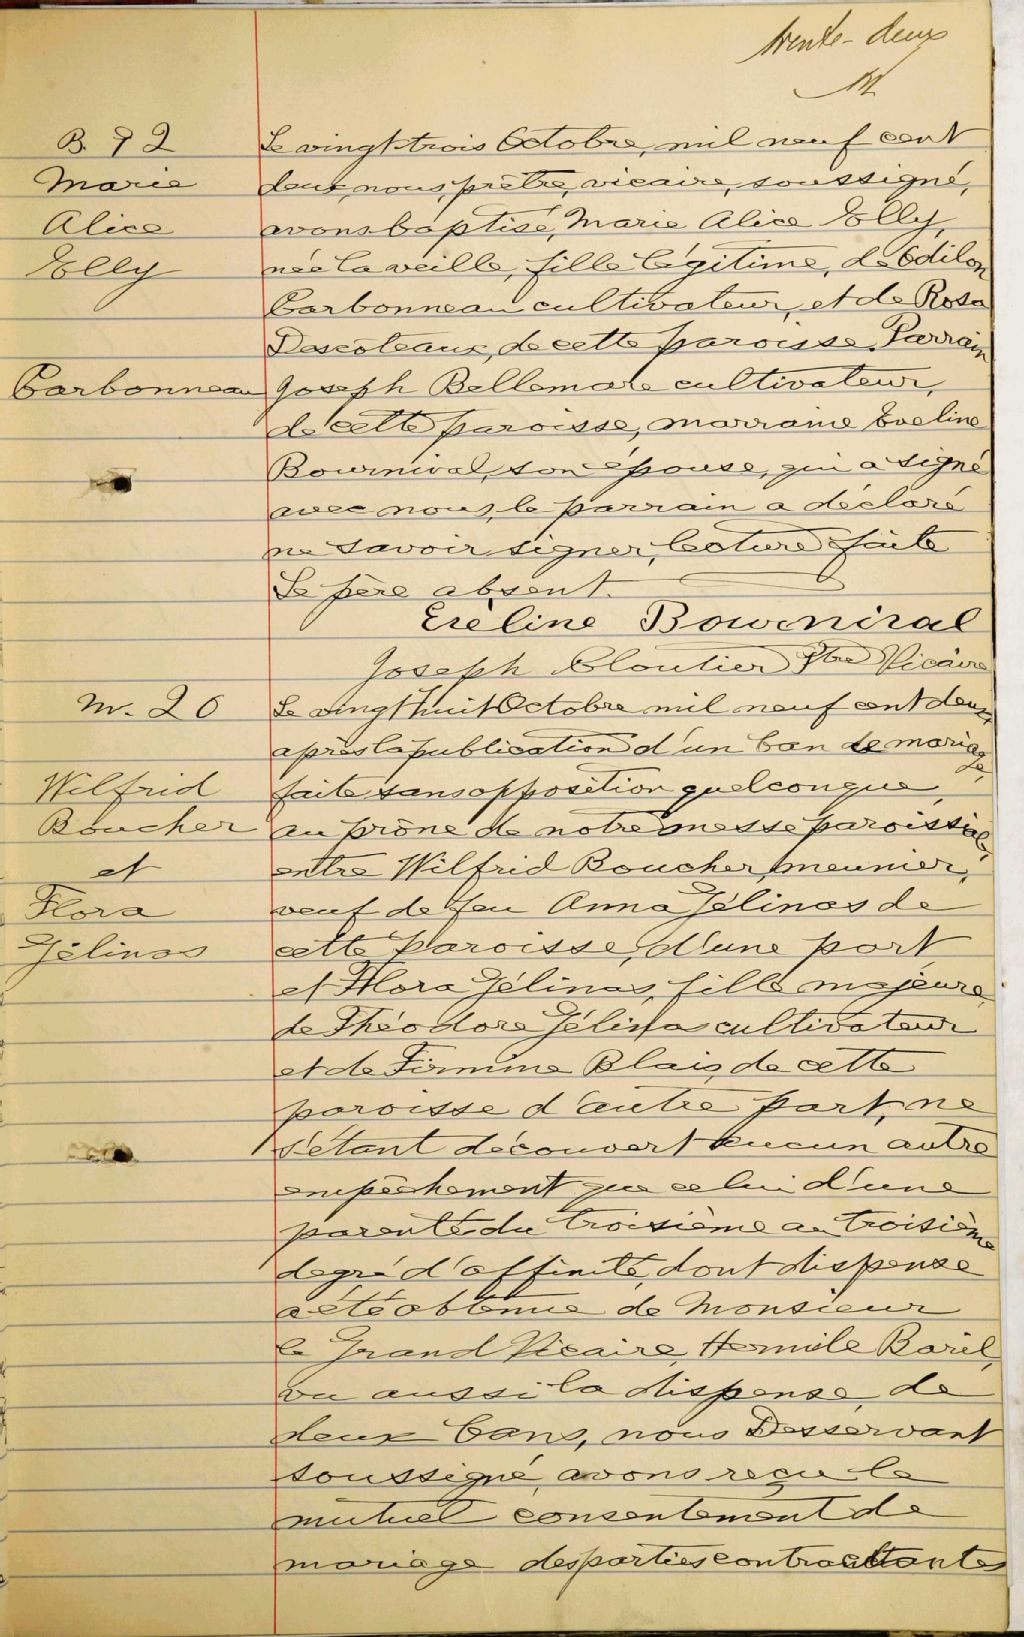 trente-deux
B. 92
Marie
Alice
Elly
Carbonneau
Le vingt-trois Octobre, mil neuf cent
deux, nous, prêtre, vicaire, soussigné,
avons baptisé, Marie Alice Elly,
née la veille, fille légitime, de Odilon
Carbonneau cultivateur, et de Rosa
Descôteaux, de cette paroisse. Parrain
Joseph Bellemare cultivateur,
de cette paroisse, marraine Eveline
Bournival, son épouse, qui a signé
avec nous, le parrain a déclaré
ne savoir signer, lecture faite
Le père absent.
Evèline Bournival
Joseph Cloutier Ptre Vicaire
M. 20
Wilfrid
Boucher
et
Flora
Gélinas
Le vingt huit Octobre mil neuf cent deux
après la publication d'un ban de mariage,
faite sans opposition quelconque,
au prône de notre messe paroissiale,
entre Wilfrid Boucher, meunier,
veuf de feu Anna Gélinas de
cette paroisse, d'une part
et Flora Gélinas, fille majeure,
de Théodore Gélinas cultivateur
et de Firmine Blais, de cette
paroisse d'autre part, ne
s'étant découvert aucun autre
empêchement que celui d'une
parenté du troisième au troisième
degré d'affinité, dont dispense
a été obtenue de Monsieur
le Grand Vicaire, Hermile Baril,
vu aussi la dispense, de
deux bans, nous Desservant
soussigné, avons reçu le
mutuel consentement de
mariage des parties contractantes